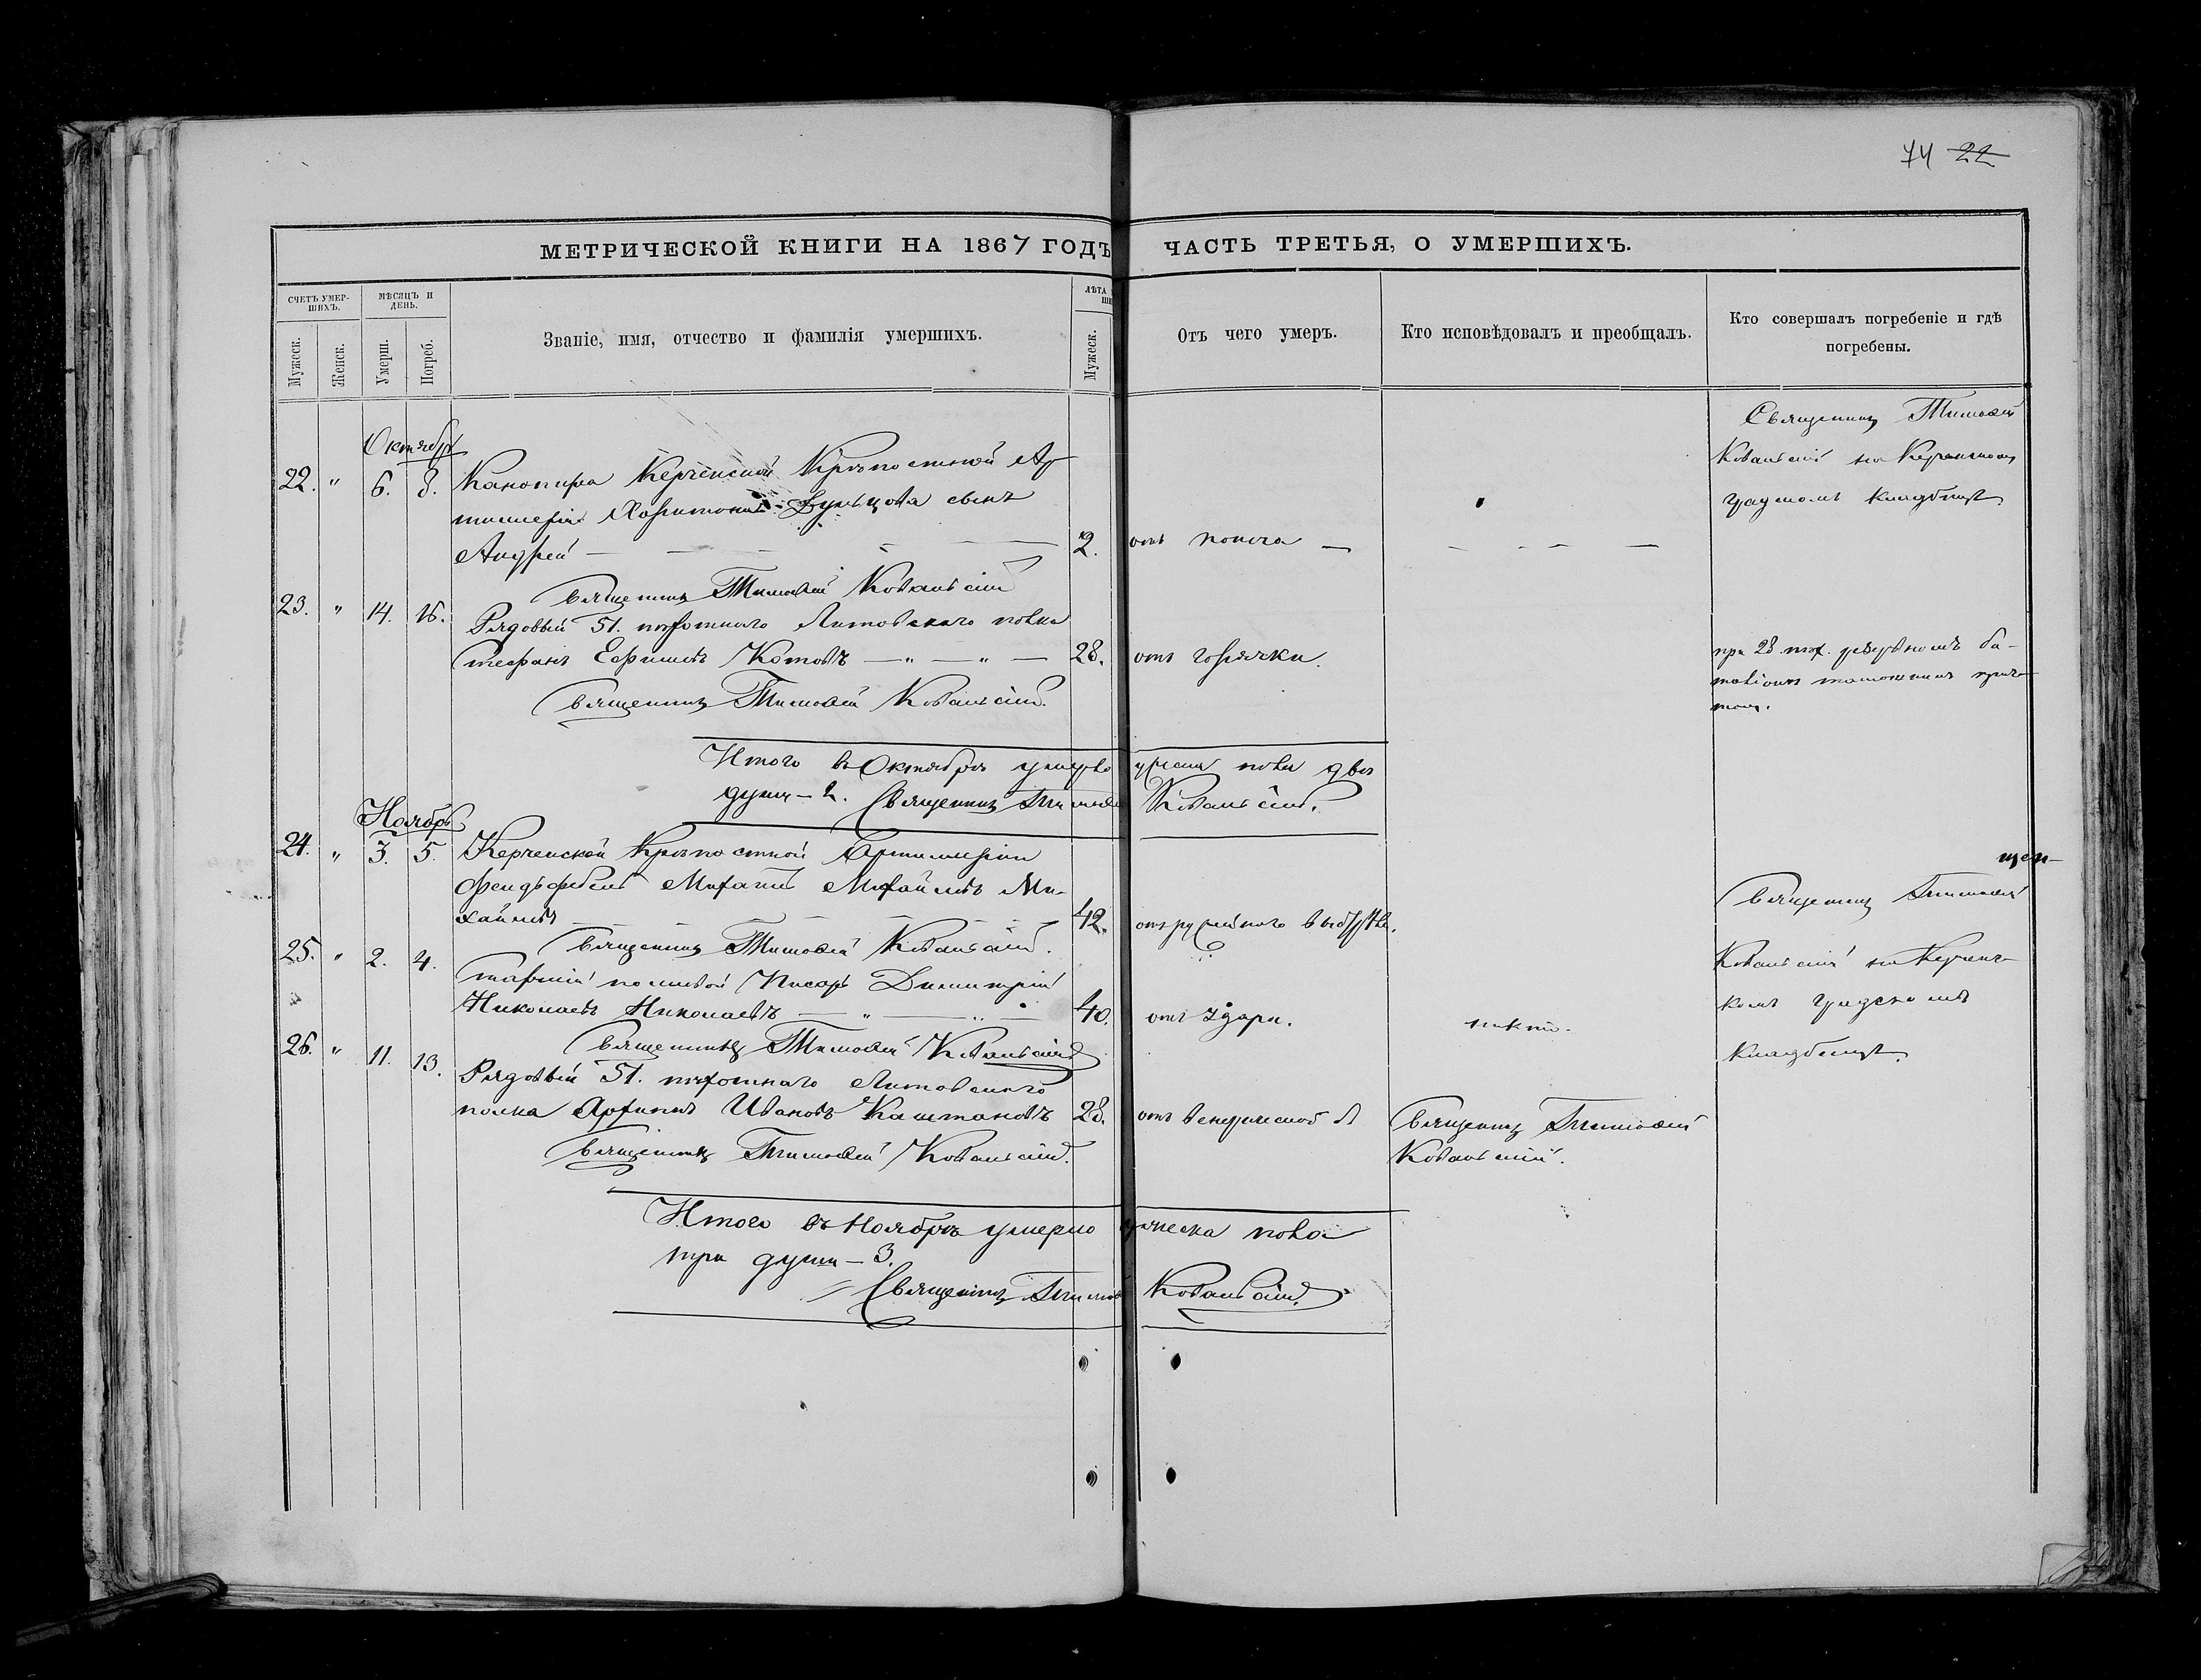 74 22
МЕТРИЧЕСКОЙ КНИГИ НА 1867 ГОДЪ ЧАСТЬ ТРЕТЬЯ, О УМЕРШИХЪ.
СЧЕТЪ УМЕР-
ШИХЪ.
МѢСЯЦЪ И
ДЕНЬ.
ЛѢТА
Мужеск.
Женск.
Умерш.
Погреб.
Званіе, имя, отчество и фамилія умершихъ.
Мужеск.
Отъ чего умеръ.
Кто исповѣдовалъ и преобщалъ.
Кто совершалъ погребеніе и гдѣ
погребены.
Октябрь
22. " 6. 8. Канонира Керченской Крѣпостной Ар
тиллеріи сынъ
Андрей 2. отъ поноса
Священникъ Тимофей
Ковальскій на Керченскомъ
градскомъ кладбищѣ
Священникъ Тимофей Ковальскій
23. " 14. 16. Рядовый 51. пѣхотнаго Литовскаго полка
Стефанъ Ефимовъ Котовъ 28. отъ горячки.
при 28 пѣх. резервномъ ба-
таліонѣ
Священникъ Тимофей Ковальскій.
Итого въ Октябрѣ умерло мужеска пола двѣ
души - 2. Священникъ Тимофей Ковальскій.
Ноябрь
24. " 3. 5. Керченской Крѣпостной Артиллеріи
фельдфебель Михаилъ Михайловъ Ми-
хайловъ 42.
Священникъ Тимофей
Священникъ Тимофей Ковальскій.
25. " 2. 4. Старшій полковой Писарь Димитрій
Николаевъ Николаевъ 40. отъ удара. никто.
Ковальскій на Керченс-
комъ градскомъ
кладбищѣ.
Священникъ Тимофей Ковальскій
26. " 11. 13. Рядовый 51. пѣхотнаго Литовскаго
полка Архипъ Ивановъ Каштановъ 28. отъ венерической б
Священникъ Тимофей
Ковальскій.
Священникъ Тимофей Ковальскій.
Итого въ Ноябрѣ умерло мужеска пола
три души - 3.
Священникъ Тимофей Ковальскій.